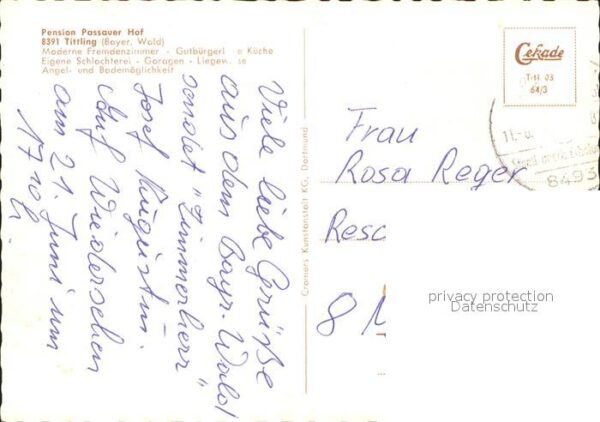 Pension Passauer Hof
8391 Tittling (Bayer. Wald)
Moderne Fremdenzimmer - Gutbürgerl e Küche
Eigene Schlachterei - Garagen - Liegew se
Angel- und Bademöglichkeit
Viele liebe Grüße
aus dem Bayr. Wald
sendet "Zimmerherr"
Josef
Auf Wiedersehen
am 21. Juni um
17 10 h.
Cramers Kunstanstalt KG, Dortmund
Cekade
Titl 03
64/3
8493
Frau
Rosa Reger
Resc
8
privacy protection
Datenschutz